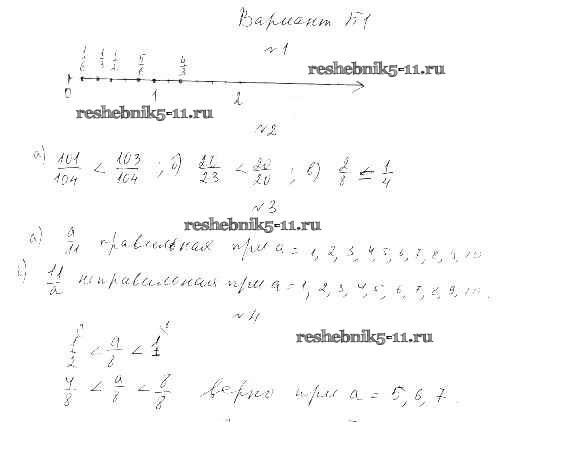 Вариант П1
№1
1/6 1/3 1/2 5/6 4/3
reshebnik5-11.ru
0 1 2
reshebnik5-11.ru
№2
а) 101/104 < 103/104 ; б) /23 < 20/20 ; в) 2/8 = 1/4
№3
reshebnik5-11.ru
а) a/11 правильная при a = 1, 2, 3, 4, 5, 6, 7, 8, 9, 10
11/a неправильная при a = 1, 2, 3, 4, 5, 6, 7, 8, 9, 10.
№4
reshebnik5-11.ru
1/2 < a/8 < 1
4/8 < a/8 < 8/8 верно при a = 5, 6, 7.